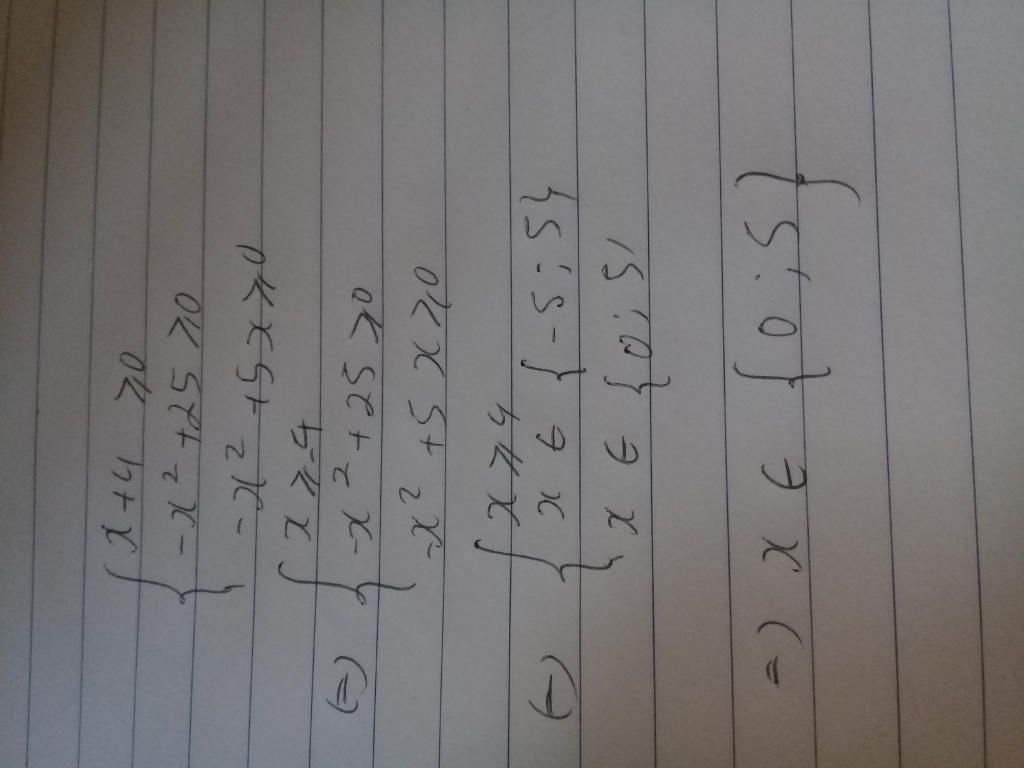 { x+4 ≥0
-x² +25 ≥0
-x² +5x ≥0
(=) { x ≥-4
-x² +25 ≥0
-x² +5x ≥0
(=) { x ≥ 4
x ϵ {-5; 5}
x ϵ {0; 5,
=) x ϵ {0; 5}